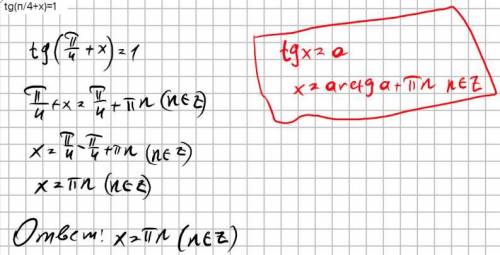 tg(π/4+x)=1
tg(π/4 + x) = 1
π/4 + x = π/4 + πn (n∈Z)
x = π/4 - π/4 + πn (n∈Z)
x = πn (n∈Z)
Ответ: x = πn (n∈Z)
tg x = a
x = arctg a + πn n∈Z